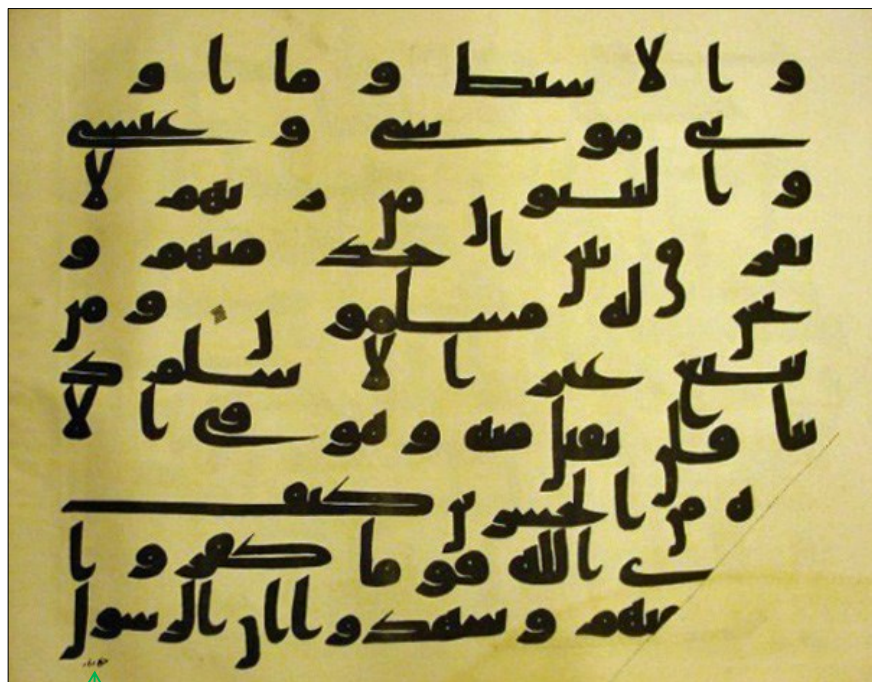 والاسبط وما او
تى موسى وعيسى
والنبيون من ربهم لا
نفرق بين احد منهم و
نحن له مسلمون ومن
يبتغ غير الاسلم د
ينا فلن يقبل منه وهو فى الا
ه من الخسرين كيف
ى الله قوما كفروا
منهم وشهدوا ان الرسول